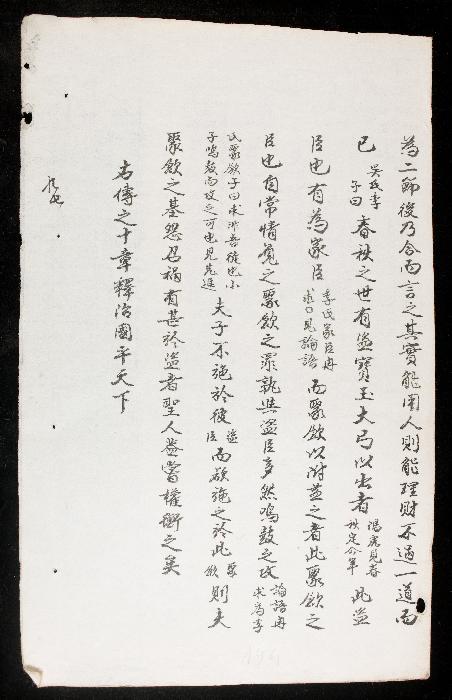 為二節後乃合而言之其實能用人則能理財不過一道而
已吳氏季子曰春秋之世有盜寶玉大弓以出者陽虎見春秋定公年此盜
臣也有為家臣季氏家臣冉求見論語而聚斂以附益之者此聚斂之
臣也自常情觀之聚斂之罪孰與盜臣多然鳴鼓之攻論語冉求為季
氏聚斂子曰求非吾徒也小子鳴鼓而攻之可也見先進夫子不施於彼盜臣而欲施之於此聚斂則夫
聚斂之基怨召禍有甚於盜者聖人蓋嘗權衡之矣
右傳之十章釋治國平天下